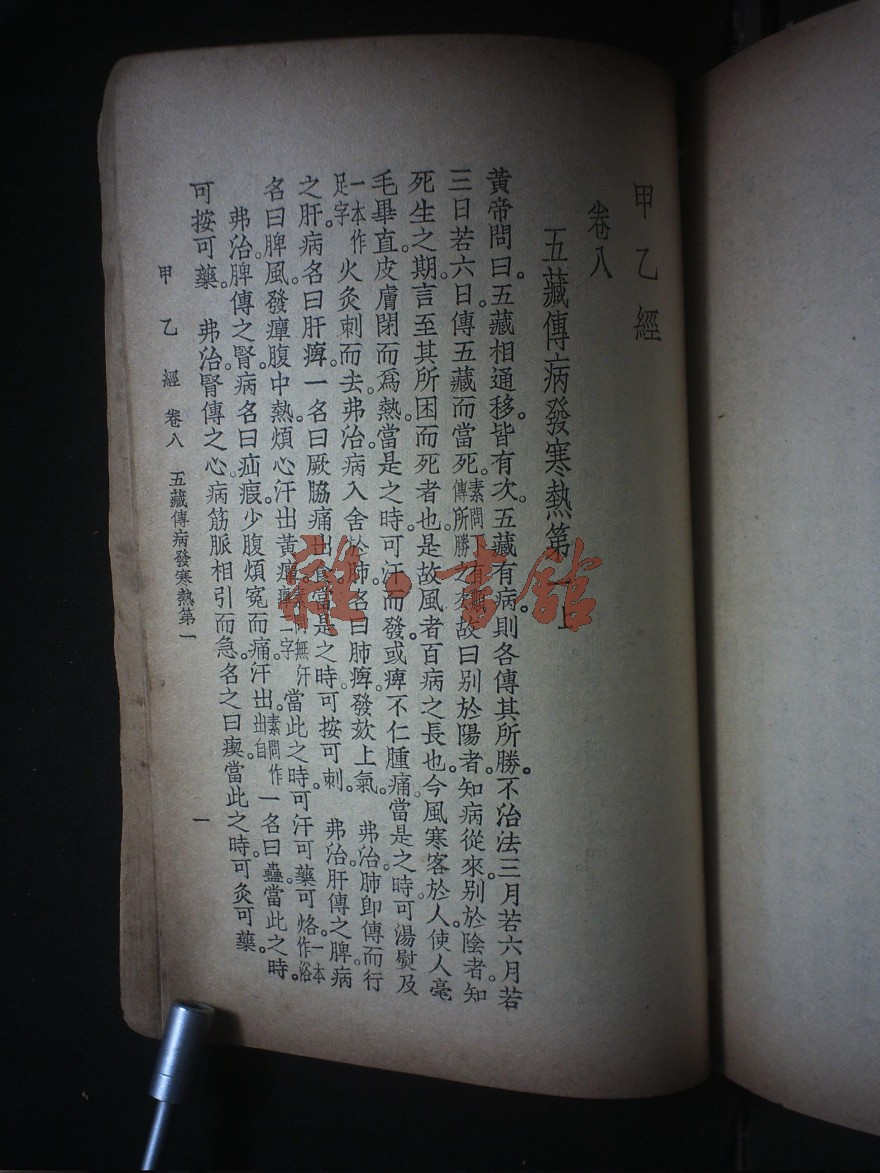 甲乙經
卷八
五藏傳病發寒熱第一上
黃帝問曰。五藏相通。移皆有次。五藏有病。則各傳其所勝。不治。法三月若六月。若
三日若六日。傳五藏而當死。素問傳所勝之次。故曰。別於陽者。知病從來。別於陰者。知
死生之期。言至其所困而死者也。是故風者。百病之長也。今風寒客於人。使人毫
毛畢直。皮膚閉而爲熱。當是之時。可汗而發。或痺不仁腫痛。當是之時。可湯熨及
一本作足字火灸刺而去。弗治。病入舍於肺。名曰肺痺。發欬上氣。弗治。肺卽傳而行
之肝。病名曰肝痺。一名曰厥。脇痛出食。當是之時。可按可刺。弗治。肝傳之脾。病
名曰脾風。發癉。腹中熱。煩心汗出黃癉。素問無汗癉二字當此之時。可汗可藥可烙。一本作浴
弗治。脾傳之腎。病名曰疝瘕。少腹煩寃而痛。汗出。素問作出白一名曰蠱。當此之時。
可按可藥。弗治。腎傳之心。病筋脈相引而急。名之曰瘈。當此之時。可灸可藥。
甲乙經 卷八 五藏傳病發寒熱第一
一
雜·書館